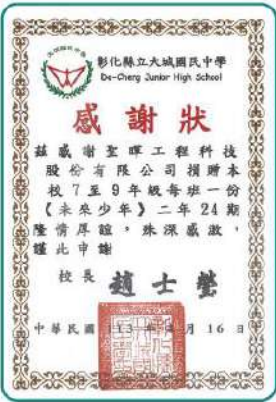 彰化縣立大城國民中學
Da-Cheng Junior High School
感謝狀
茲感謝聖暉工程科技
股份有限公司捐贈本
校7至9年級每班一份
《未來少年》二年24期
隆情厚誼，殊深感激，
謹此申謝
校長 趙士瑩
中華民國113年 月16日